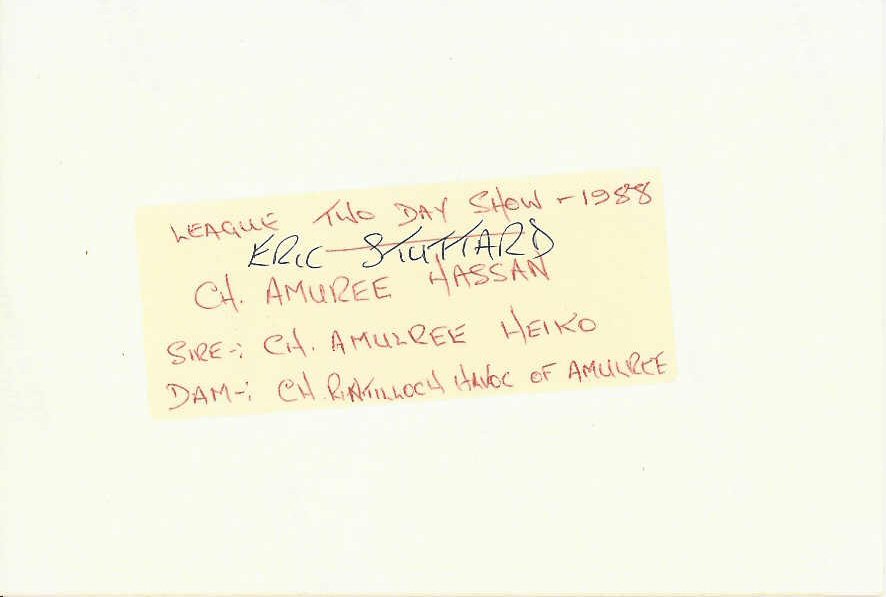 LEAGUE TWO DAY SHOW - 1988
ERIC STUTTARD
CH. AMUREE HASSAN
SIRE-: CH. AMULREE HEIKO
DAM-: CH. RINTILLOCH HAVOC OF AMULREE